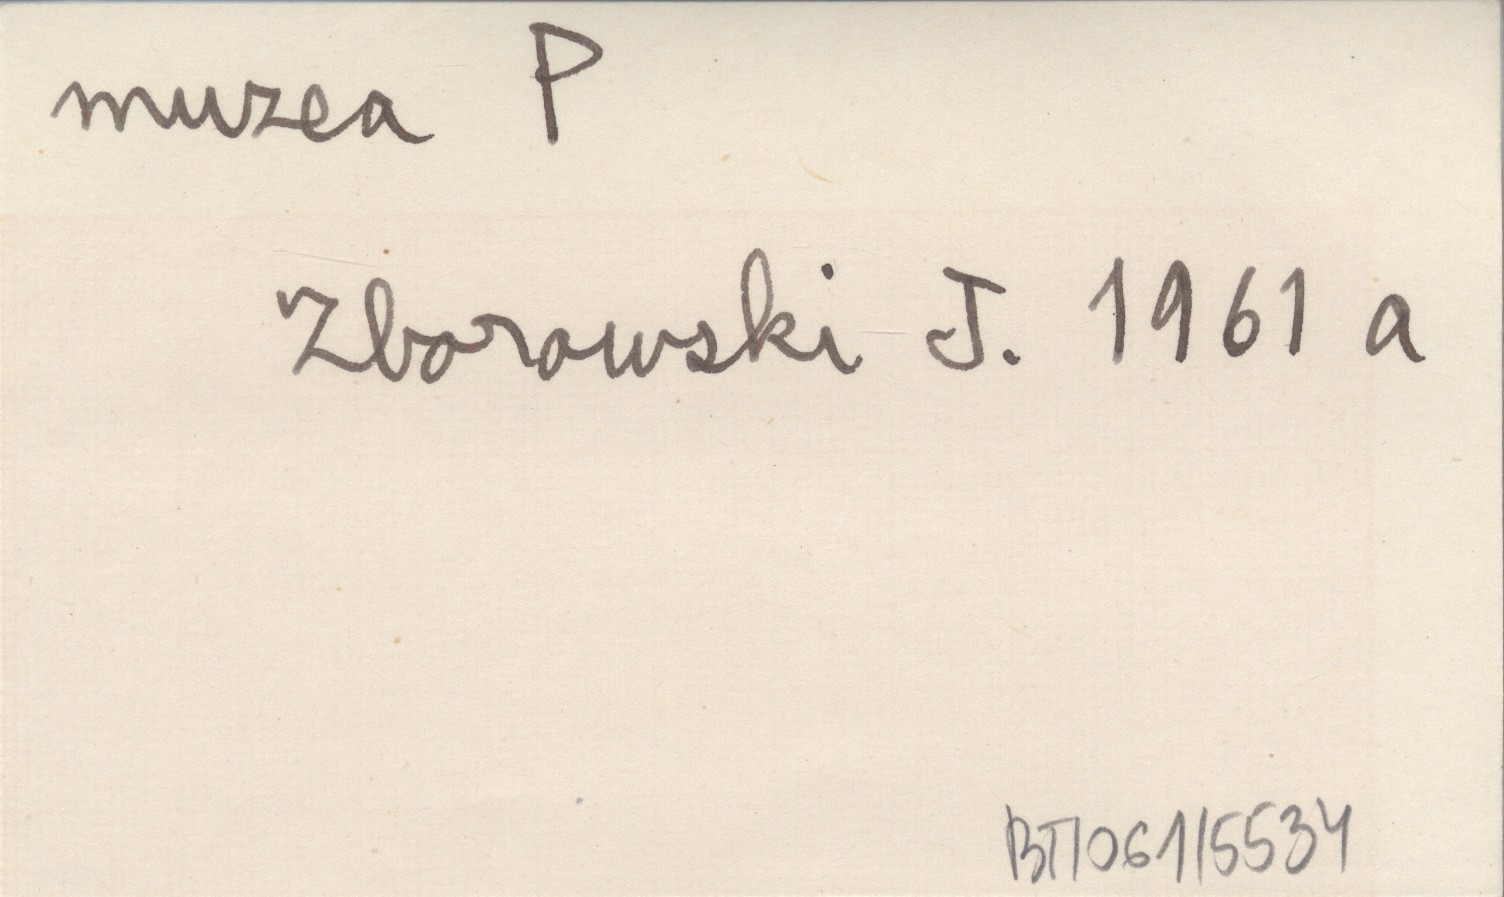 muzea P
Zborowski J. 1961 a
BT/061/5534